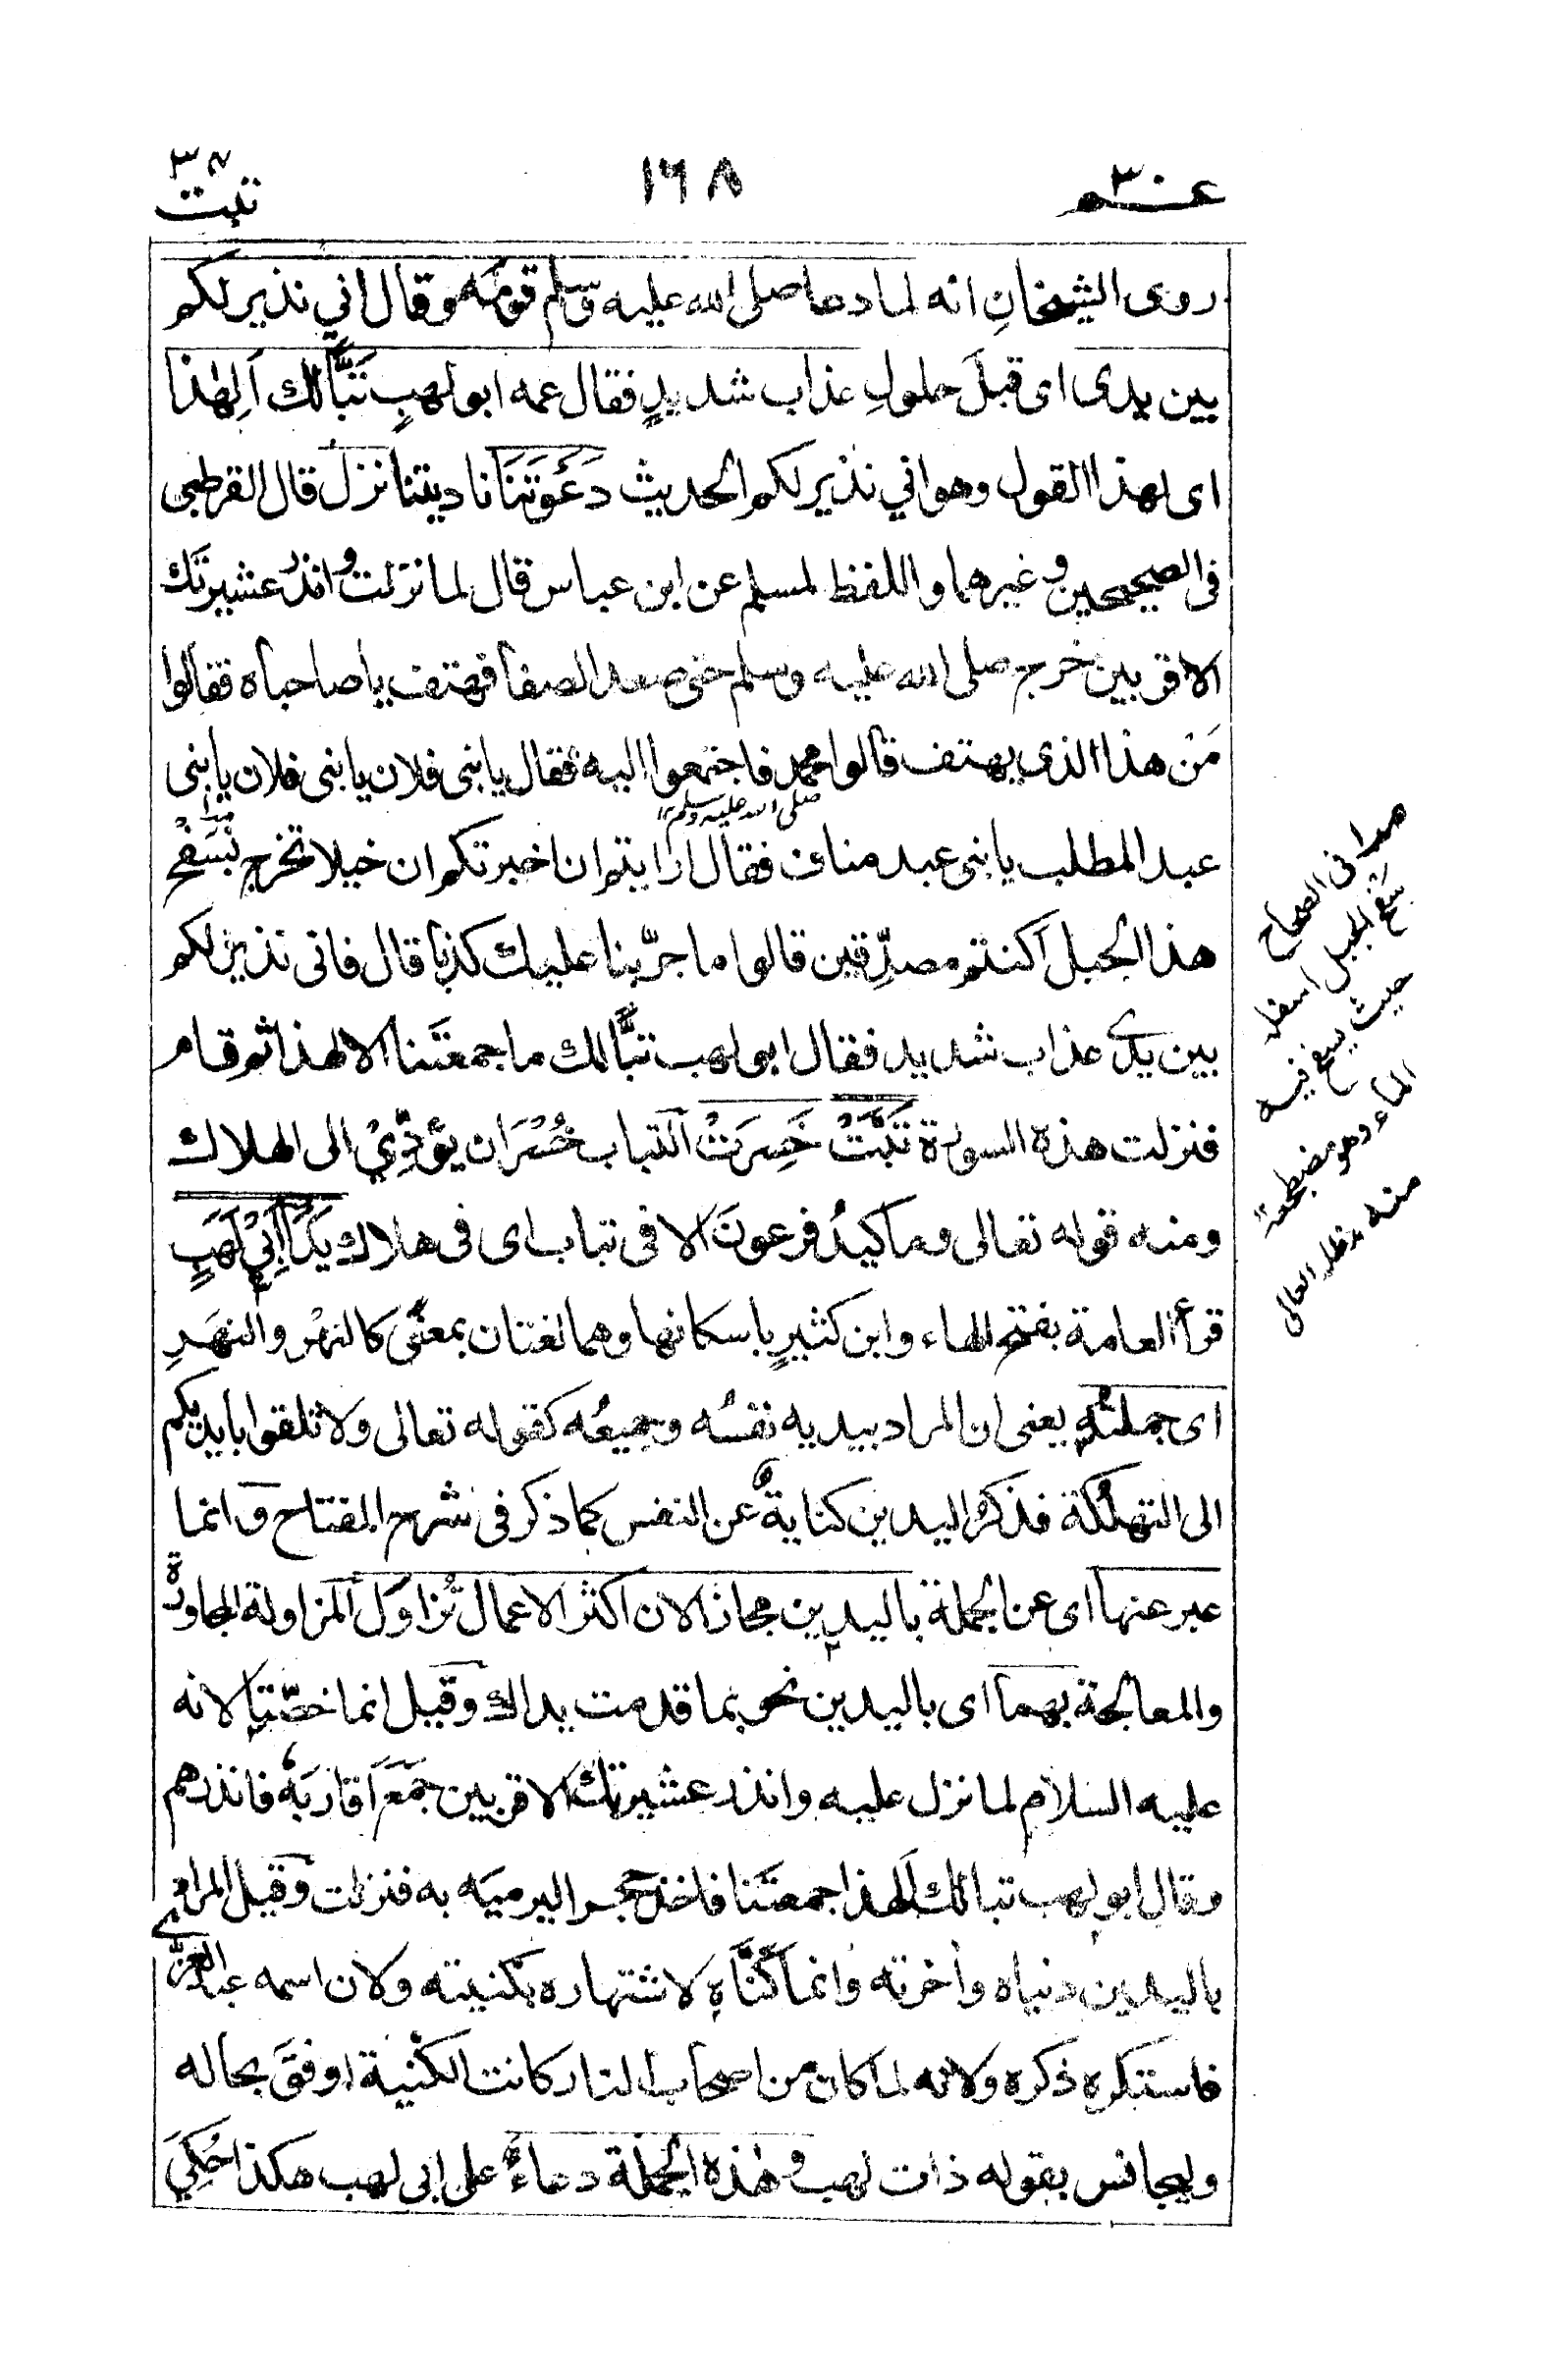 عـم ٣٠
١٦٨
٣٨ تبت
روى الشيخانِ انه لما دعا صلى الله عليه وسلم قومَه وقال اني نذير لكم
بين يدى اى قبلَ حلولِ عذاب شديدٍ فقال عمه ابو لهبٍ تَبًّا لك اَلِهٰذا
اى لهذا القول وهو اني نذير لكم الحديث دَعَوْتَنَا ناديتنا نزل قال القرطبى
فى الصحيحين وغيرهما واللفظ لمسلم عن ابن عباس قال لما نزلت وانذر عشيرتك
الاقربين خرج صلى الله عليه وسلم حتى صعد الصفا فهتف يا صاحباه فقالوا
مَنْ هذا الذى يهتف قالوا محمد فاجتمعوا اليه فقال يا بنى فلان يا بنى فلان يا بنى
صلى الله عليه وسلم
عبد المطلب يا بنى عبد مناف فقال ارايتم ان اخبرتكم ان خيلا تخرج بسَفْح
هذا الجبل اَكنتم مصدِّقين قالوا ما جرّبنا عليك كذبا قال فانى نذير لكم
بين يدَے عذاب شديد فقال ابو لهب تبًّا لك ما جمعتَنا الا لهذا ثم قام
فنزلت هذه السورة تَبَّتْ خَسِرَتْ التباب خُسْرَان يؤدِّيْ الى الهلاك
ومنه قوله تعالى وما كيدُ فرعونَ الا فى تباب اى فى هلاك يَدَا اَبِيْ لَهَبٍ
قرأ العامة بفتح الهاء وابن كثيرٍ باسكانها وهما لغتان بمعنًى كالنهْر والنهَرِ
اى جملتُه يعنى ان المراد بيديه نفسُه وجميعُه كقوله تعالى ولا تلقوا بايديكم
الى التهلكة فذكرُ اليدين كنايةٌ عن النفس كما ذكر فى شرح المفتاح وانما
عبر عنها اى عن الجملة باليدين مجازا لان اكثر الاعمال تُزاوَل المزاولة المحاورة
والمعالجة بهما اى باليدين نحو بما قدمت يداك وقيل انما خصّتا لانه
عليه السلام لما نزل عليه وانذر عشيرتك الاقربين جَمَعَ اَقاربَهٗ فانذرهم
وقال ابو لهب تبا لك اَلهذا جمعتَنا فاخذ حجرا ليرميَه به فنزلت وقيل المراد
باليدين دنياه وأخرته وانما كَنَّاه لاشتهاره بكنيته ولان اسمه عبد العزّى
فاستكره ذكره ولانه لما كان من اصحاب النار كانت الكنية اوفقَ بحاله
وليجانس بقوله ذات لهب وهٰذه الجملة دعاءٌ على ابى لهب هكذا حُكِيَ
فى الصحاح
سفح الجبل اسفله
حيث يسفح فيه
الماء وهو مضطجعه
منه مدظله العالى